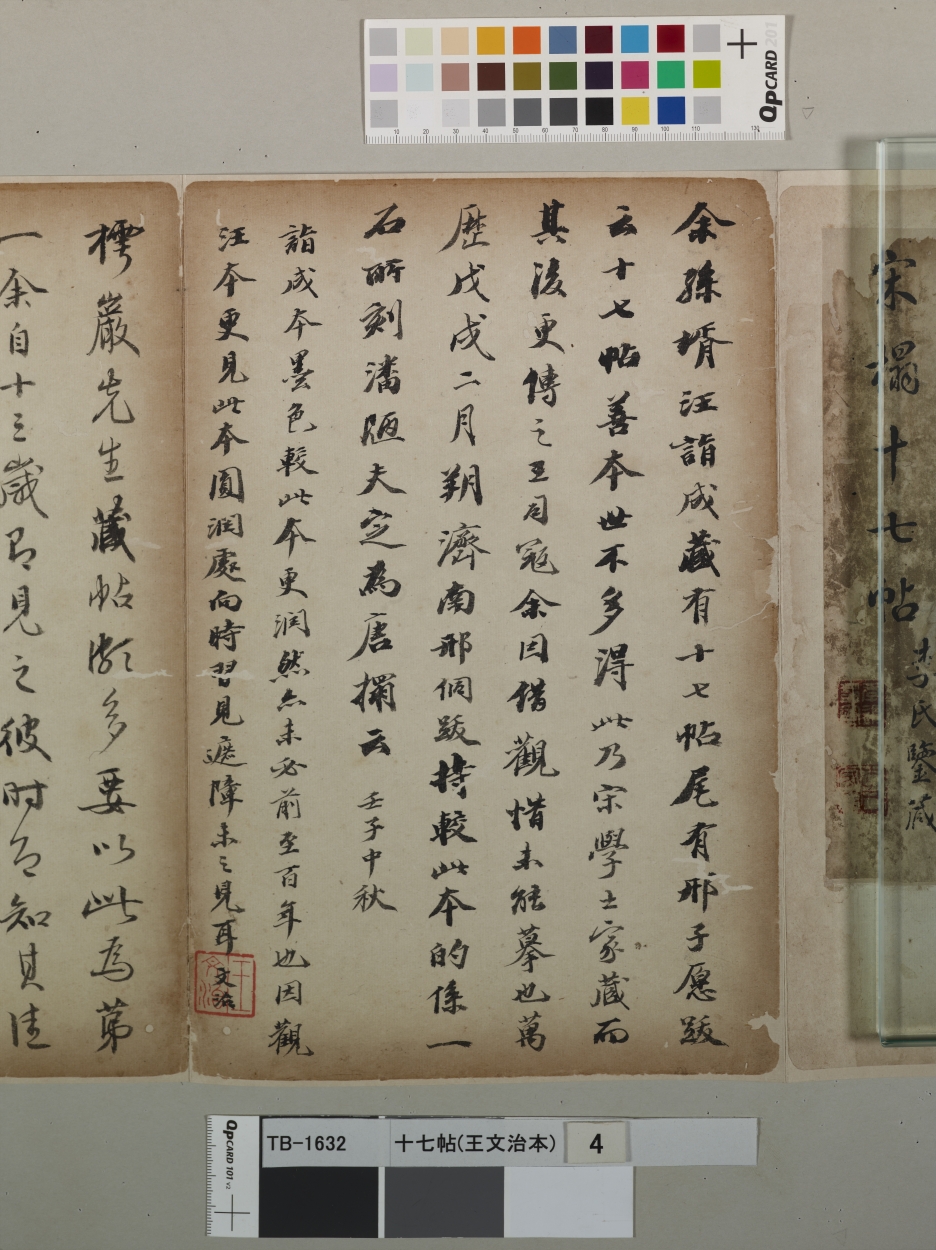 QpCARD 201
10 20 30 40 50 60 70 80 90 100 110 130
宋搨十七帖
李氏鑒藏
余孫壻汪詣成藏有十七帖尾有邢子愿跋
云十七帖善本世不多得此乃宋學士家藏而
其後更傳之王司寇余因借觀惜未能摹也萬
歷戊戌二月朔濟南邢侗跋持較此本的係一
石所刻潘陋夫定為唐搨云 壬子中秋
詣成本墨色較此本更潤然亦未必前至百年也因觀
汪本更見此本圓潤處向時習見遮障未之見耳 文治
王文治
樗巖先生藏帖頗多要以此為第
一余自十三歲即見之彼時即知其佳
QpCARD 101 v2
TB-1632 十七帖(王文治本) 4